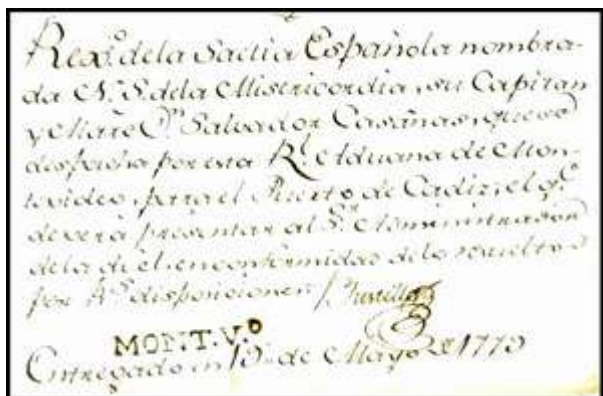 Rexº. dela Saetia Española nombra-
da N. S. dela Misericordia, su Capitan
y Mãre Dⁿ. Salvador Casañas, que se
despacha por esta Rˡ. Aduana de Mon-
tevideo, para el Puerto de Cadiz, el qᵉ.
deverá presentar al Sᵒʳ. Administrador
dela de el, en conformidad delo resuelto
por Rˢ. disposiciones
MONT.Vº
Entregado en de Mayo de 177